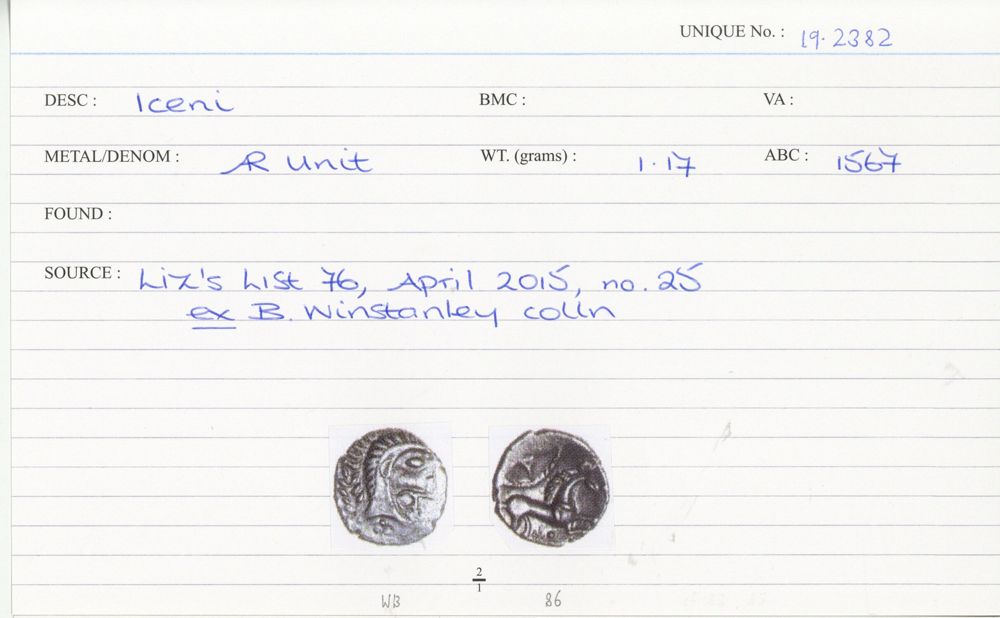 UNIQUE No. : 19.2382
DESC : Iceni BMC : VA :
METAL/DENOM : AR Unit WT. (grams) : 1.17 ABC : 1567
FOUND :
SOURCE : Liz's List 76, April 2015, no. 25
ex B. Winstanley colln
2
1
WB 86